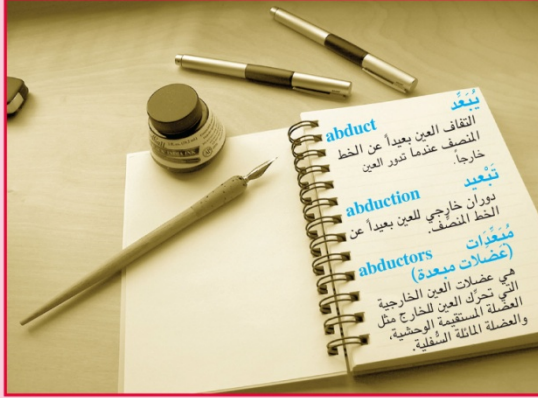 abduct يُبَعِّد
التفاف العين بعيداً عن الخط
المنصف عندما تدور العين
خارجاً.
abduction تَبْعيد
دوران خارجي للعين بعيداً عن
الخط المنصِّف.
abductors مُبَعِّدَات
(عَضَلات مبعدة)
هي عضلات العين الخارجية
التي تحرِّك العين للخارج مثل
العضلة المستقيمة الوحشية،
والعضلة المائلة السُّفلية.